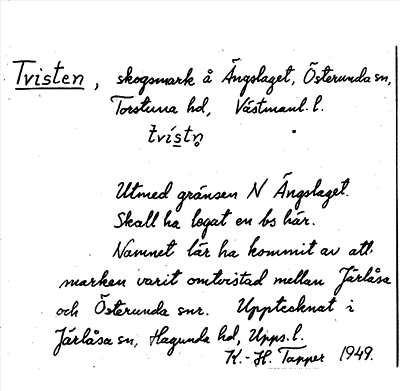 Tvisten, skogsmark å Ängslaget, Österunda sn,
Torstuna hd, Västmanl. l.
tvistn̥
Utmed gränsen N Ängslaget.
Skall ha legat en bs här.
Namnet lär ha kommit av att
marken varit omtvistad mellan Järlåsa
och Österunda snr. Upptecknat i
Järlåsa sn, Hagunda hd, Upps. l.
K.-H. Tapper 1949.